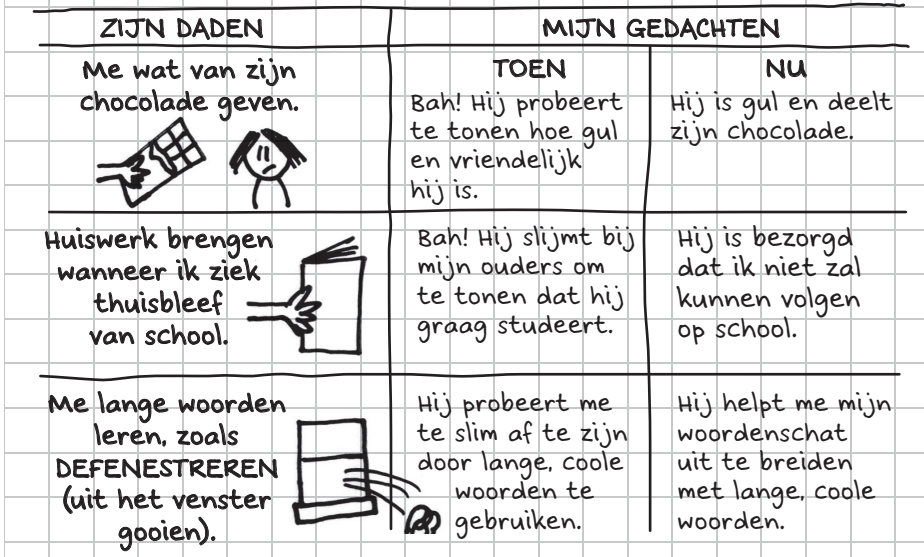 ZIJN DADEN
MIJN GEDACHTEN
TOEN
NU
Me wat van zijn
chocolade geven.
Bah! Hij probeert
te tonen hoe gul
en vriendelijk
hij is.
Hij is gul en deelt
zijn chocolade.
Huiswerk brengen
wanneer ik ziek
thuisbleef
van school.
Bah! Hij slijmt bij
mijn ouders om
te tonen dat hij
graag studeert.
Hij is bezorgd
dat ik niet zal
kunnen volgen
op school.
Me lange woorden
leren, zoals
DEFENESTREREN
(uit het venster
gooien).
Hij probeert me
te slim af te zijn
door lange, coole
woorden te
gebruiken.
Hij helpt me mijn
woordenschat
uit te breiden
met lange, coole
woorden.